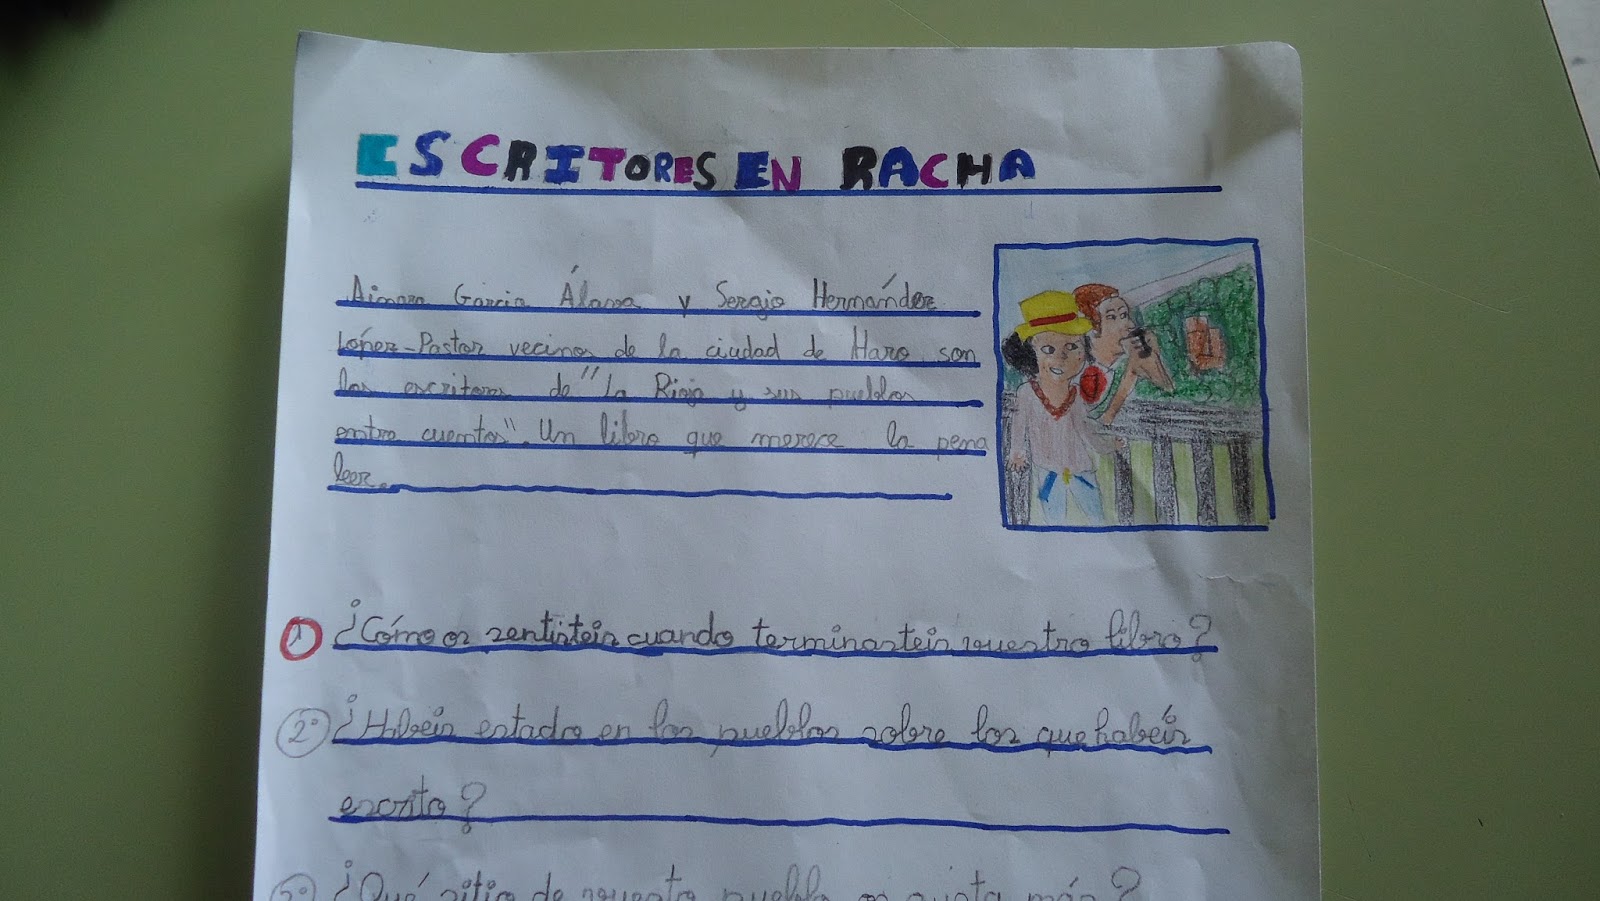 ESCRITORES EN RACHA
Aimara Garcia Álava y Sergio Hernández
López-Pastor vecinos de la ciudad de Haro son
los escritores de "La Rioja y sus pueblos
entre cuentos". Un libro que merece la pena
leer.
1 ¿Cómo os sentisteis cuando terminasteis vuestro libro?
2º ¿Habeis estado en los pueblos sobre los que habéis
escrito?
3º ¿Qué sitio de vuestro pueblo os gusta más?